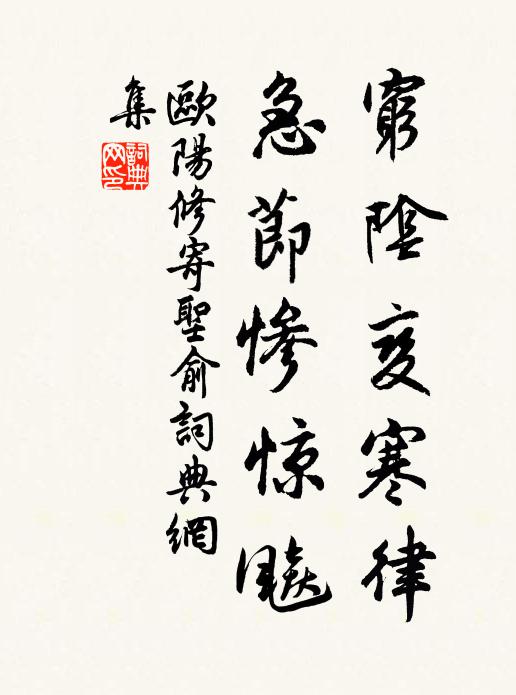 窮陰变寒律
急節慘惊飈
歐陽修寄聖俞詞典網
集
詞典
网印